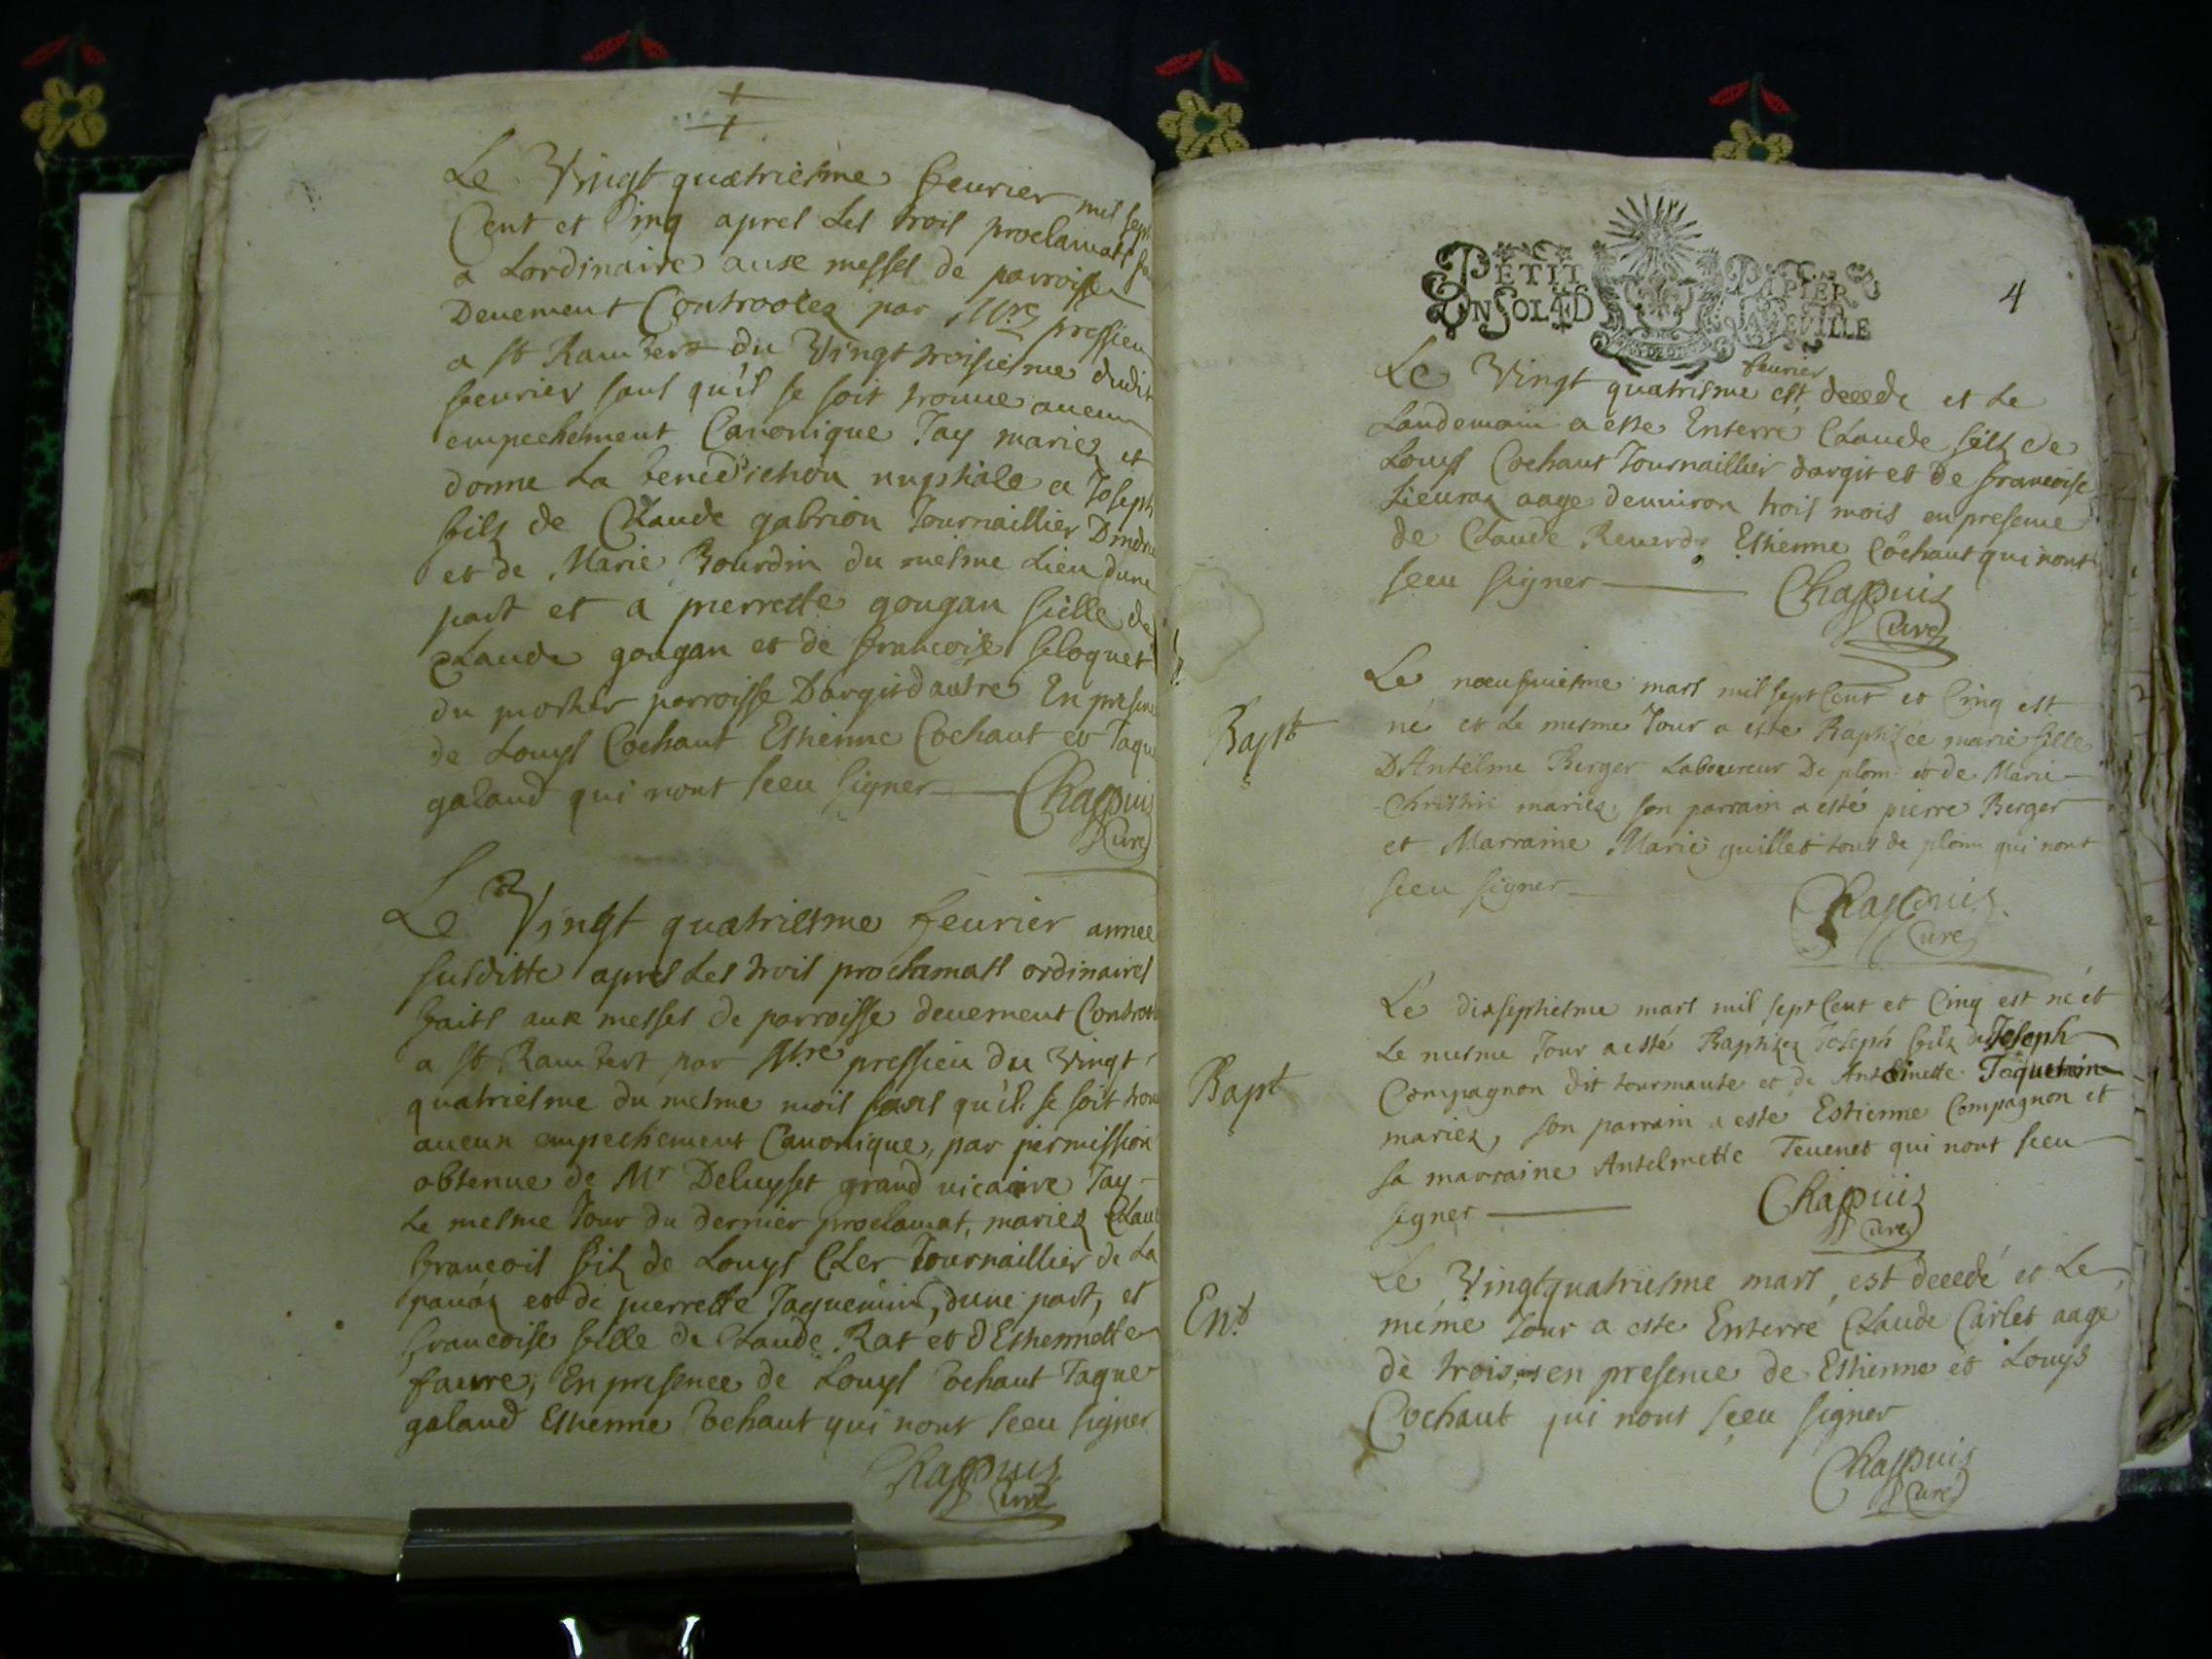 Le Vingt quatriesme feurier mil sept
Cent et Cinq apres Les trois proclamats
a Lordinaire aux messes de parroisse
Deuement Controolez par Mre pressieu
a St Rambert du Vingt troisiesme dudit
feurier sans qu'il se soit trouue aucun
empechement Canonique Jay mariez et
donne La benediction nuptiale a Joseph
fils de Claude gabrion Journaillier
et de Marie Bourdin du mesme Lieu dune
part et a pierrette gougan fille de
Claude gougan et de francoise floquet
du mortier parroisse Dargis dautre En presence
de Louys Cochaut Estienne Cochaut et Jaque
galand qui nont sceu signer Chappuis
Curé
Le Vingt quatriesme feurier annee
susditte apres Les trois proclamats ordinaires
faits aux messes de parroisse deuement
a St Rambert par Mre pressieu du Vingt
quatriesme du mesme mois sans qu'il se soit
aucun empechement Canonique, par permission
obtenue de Mr Deluyset grand vicaire Jay
Le mesme Jour du dernier proclamat, mariez
francois filz de Louys CLer Journaillier de La
et de pierrette Jaquemin, dune part, et
francoise fille de Claude Rat et dEstiennette
faure, En presence de Louys Cochaut Jaque
galand Estienne Cochaut qui nont sceu signer
Chappuis
Curé
PETIT PAPIER
UN SOL 4 D LA FEUILLE
4
feurier
Le Vingt quatrisme est decede et Le
Landemain a este Enterré Claude filz de
Louys Cochaut Journaillier dargis et de francoise
Lieuraz aage denuiron trois mois en presence
de Claude Reuerdy Estienne Cochaut qui nont
sceu signer Chappuis
Curé
Le noeufuiesme mars mil sept Cent et Cinq est
né et Le mesme Jour a este Baptizée marie fille
Bapt
DAntelme Berger Laboureur De plom et de Marie
Christin mariez, son parrain a esté pierre Berger
et Marraine Marie guillet tous de plom qui nont
sceu signer
Chappuis
Curé
Le dixseptiesme mars mil sept Cent et Cinq est né et
Le mesme Jour a esté Baptizez Joseph filz de Joseph
Bapt
Compagnon dit tourmante et de Antelmette Jaquemin
mariez, son parrain a este Estienne Compagnon et
sa marraine Antelmette Teuenet qui nont sceu
signer Chappuis
Curé
Le Vingtquatriesme mars, est decedé et Le
Ent
méme Jour a este Enterré Claude Carlet aagé
de trois ans en presence de Estienne et Louys
Cochaut qui nont sceu signer
Chappuis
Curé